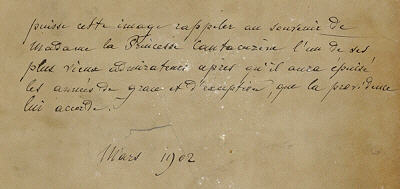 puisse cette image rappeler au souvenir de
Madame la Princesse Cantacuzène l'un de ses
plus vieux admirateurs après qu'il aura épuisé
les années de grace et d'exeption, que la providence
lui accorde.
Mars 1902